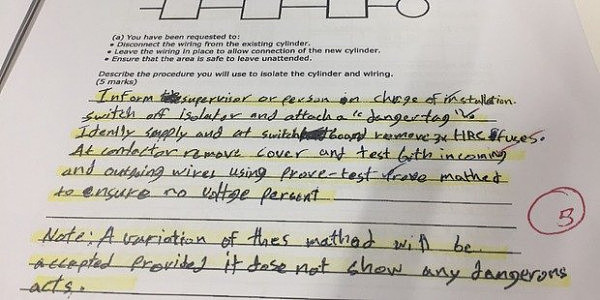 (a) You have been requested to:
• Disconnect the wiring from the existing cylinder.
• Leave the wiring in place to allow connection of the new cylinder.
• Ensure that the area is safe to leave unattended.
Describe the procedure you will use to isolate the cylinder and wiring.
(5 marks)
Inform supervisor or person in charge of installation.
switch off isolator and attach a "danger tag".
Idenily smpply and at switchboard remove 3x HRC fuses.
At contactor remove cover and test both incoming
and outgoing wires using prove-test-prove mathod
to ensure no voltge persent
5
Note: A variation of thes mathod will be
accepted provided it dose not show any dangerous
acts.